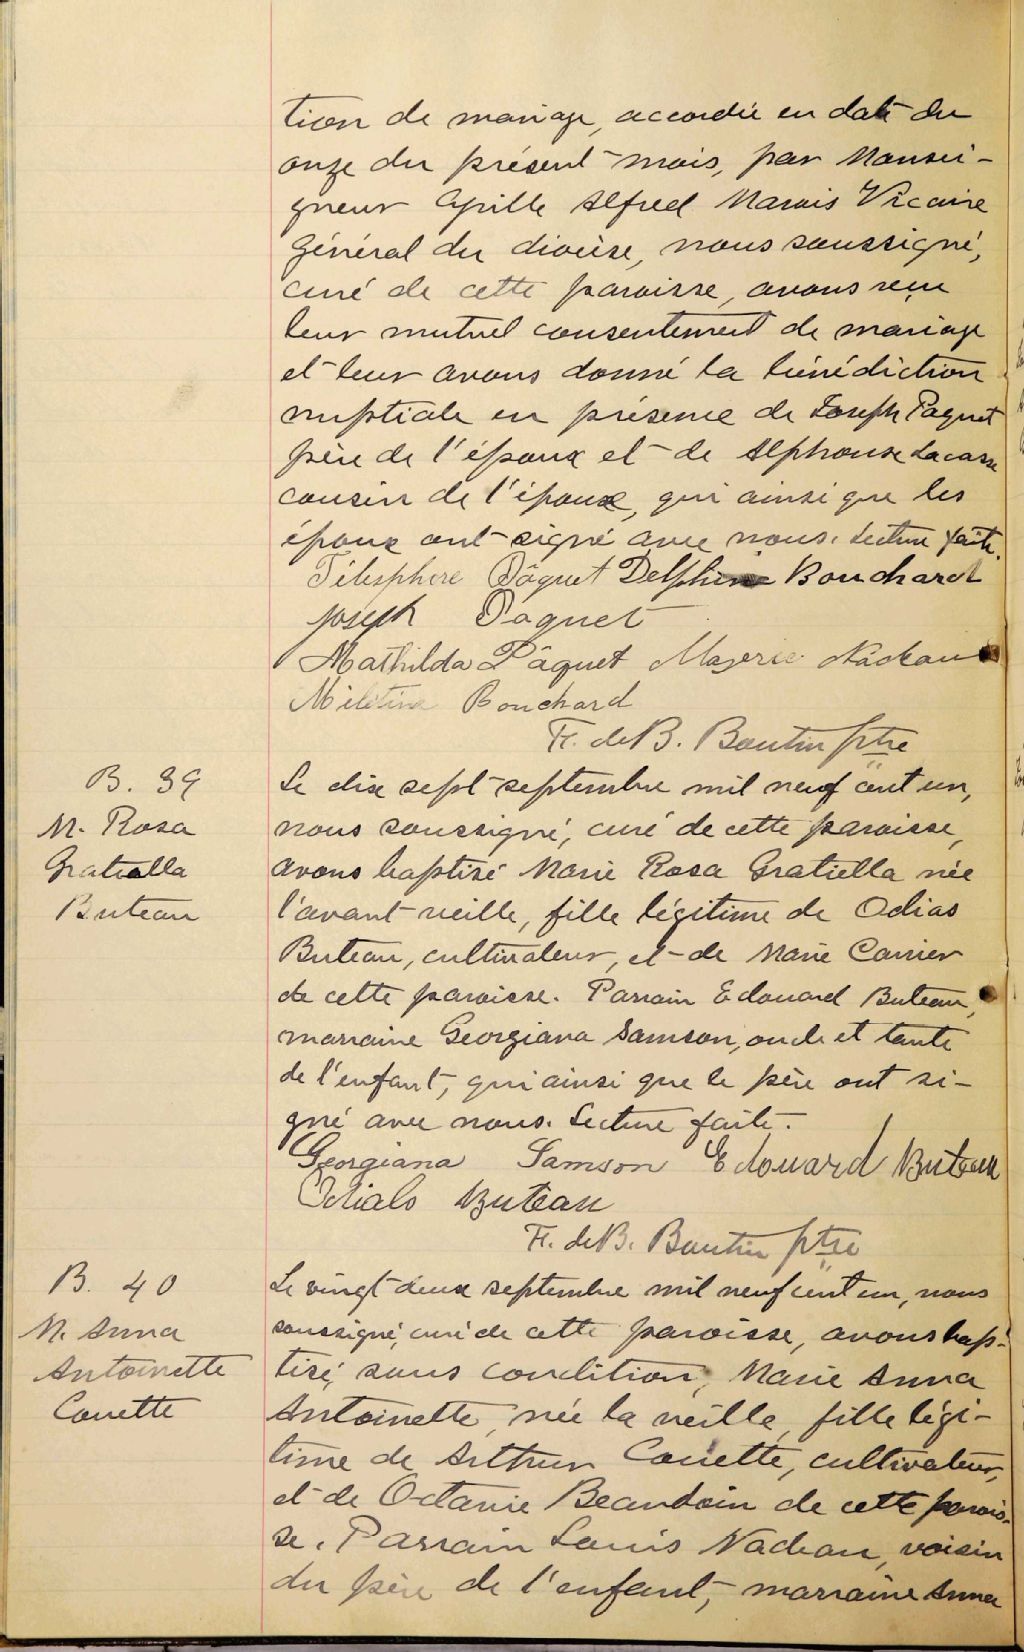 tion de mariage, accordée en date du
onze du présent mois, par Monsei-
gneur Cyrille Alfred Marois Vicaire
Général du diocèse, nous soussigné,
curé de cette paroisse, avons reçu
leur mutuel consentement de mariage
et leur avons donné la bénédiction
nuptiale en présence de Joseph Paquet
père de l'époux et de Alphonse Lacasse
cousin de l'époux, qui ainsi que les
époux ont signé avec nous. Lecture faite.
Télesphore Pâquet Delphine Bouchard
Joseph Paquet
Mathilda Pâquet Nadeau
Bouchard
Fr. de B. Boutin ptre
B. 39
M. Rosa
Gratiella
Buteau
Le dix sept septembre mil neuf cent un,
nous soussigné, curé de cette paroisse,
avons baptisé Marie Rosa Gratiella née
l'avant veille, fille légitime de Odias
Buteau, cultivateur, et de Marie Carrier
de cette paroisse. Parrain Edouard Buteau,
marraine Georgiana Samson, oncle et tante
de l'enfant, qui ainsi que le père ont si-
gné avec nous. Lecture faite.
Georgiana Samson Edouard Buteau
Buteau
Fr. de B. Boutin ptre
B. 40
M. Anna
Antoinette
Couette
Le vingt deux septembre mil neuf cent un, nous
soussigné, curé de cette paroisse, avons bap-
tisé, sous condition, Marie Anna
Antoinette, née la veille, fille légi-
time de Arthur Couette, cultivateur,
et de Octavie Beaudoin de cette parois-
se. Parrain Louis Nadeau, voisin
du père de l'enfant, marraine Anna